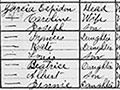 Garcia Cepidon Head
Caroline Wife
Joseph Son
Frances Daughter
Kate Daughter
Jonas Son
Beatrice Daughter
Albert Son
Jennie Daughter